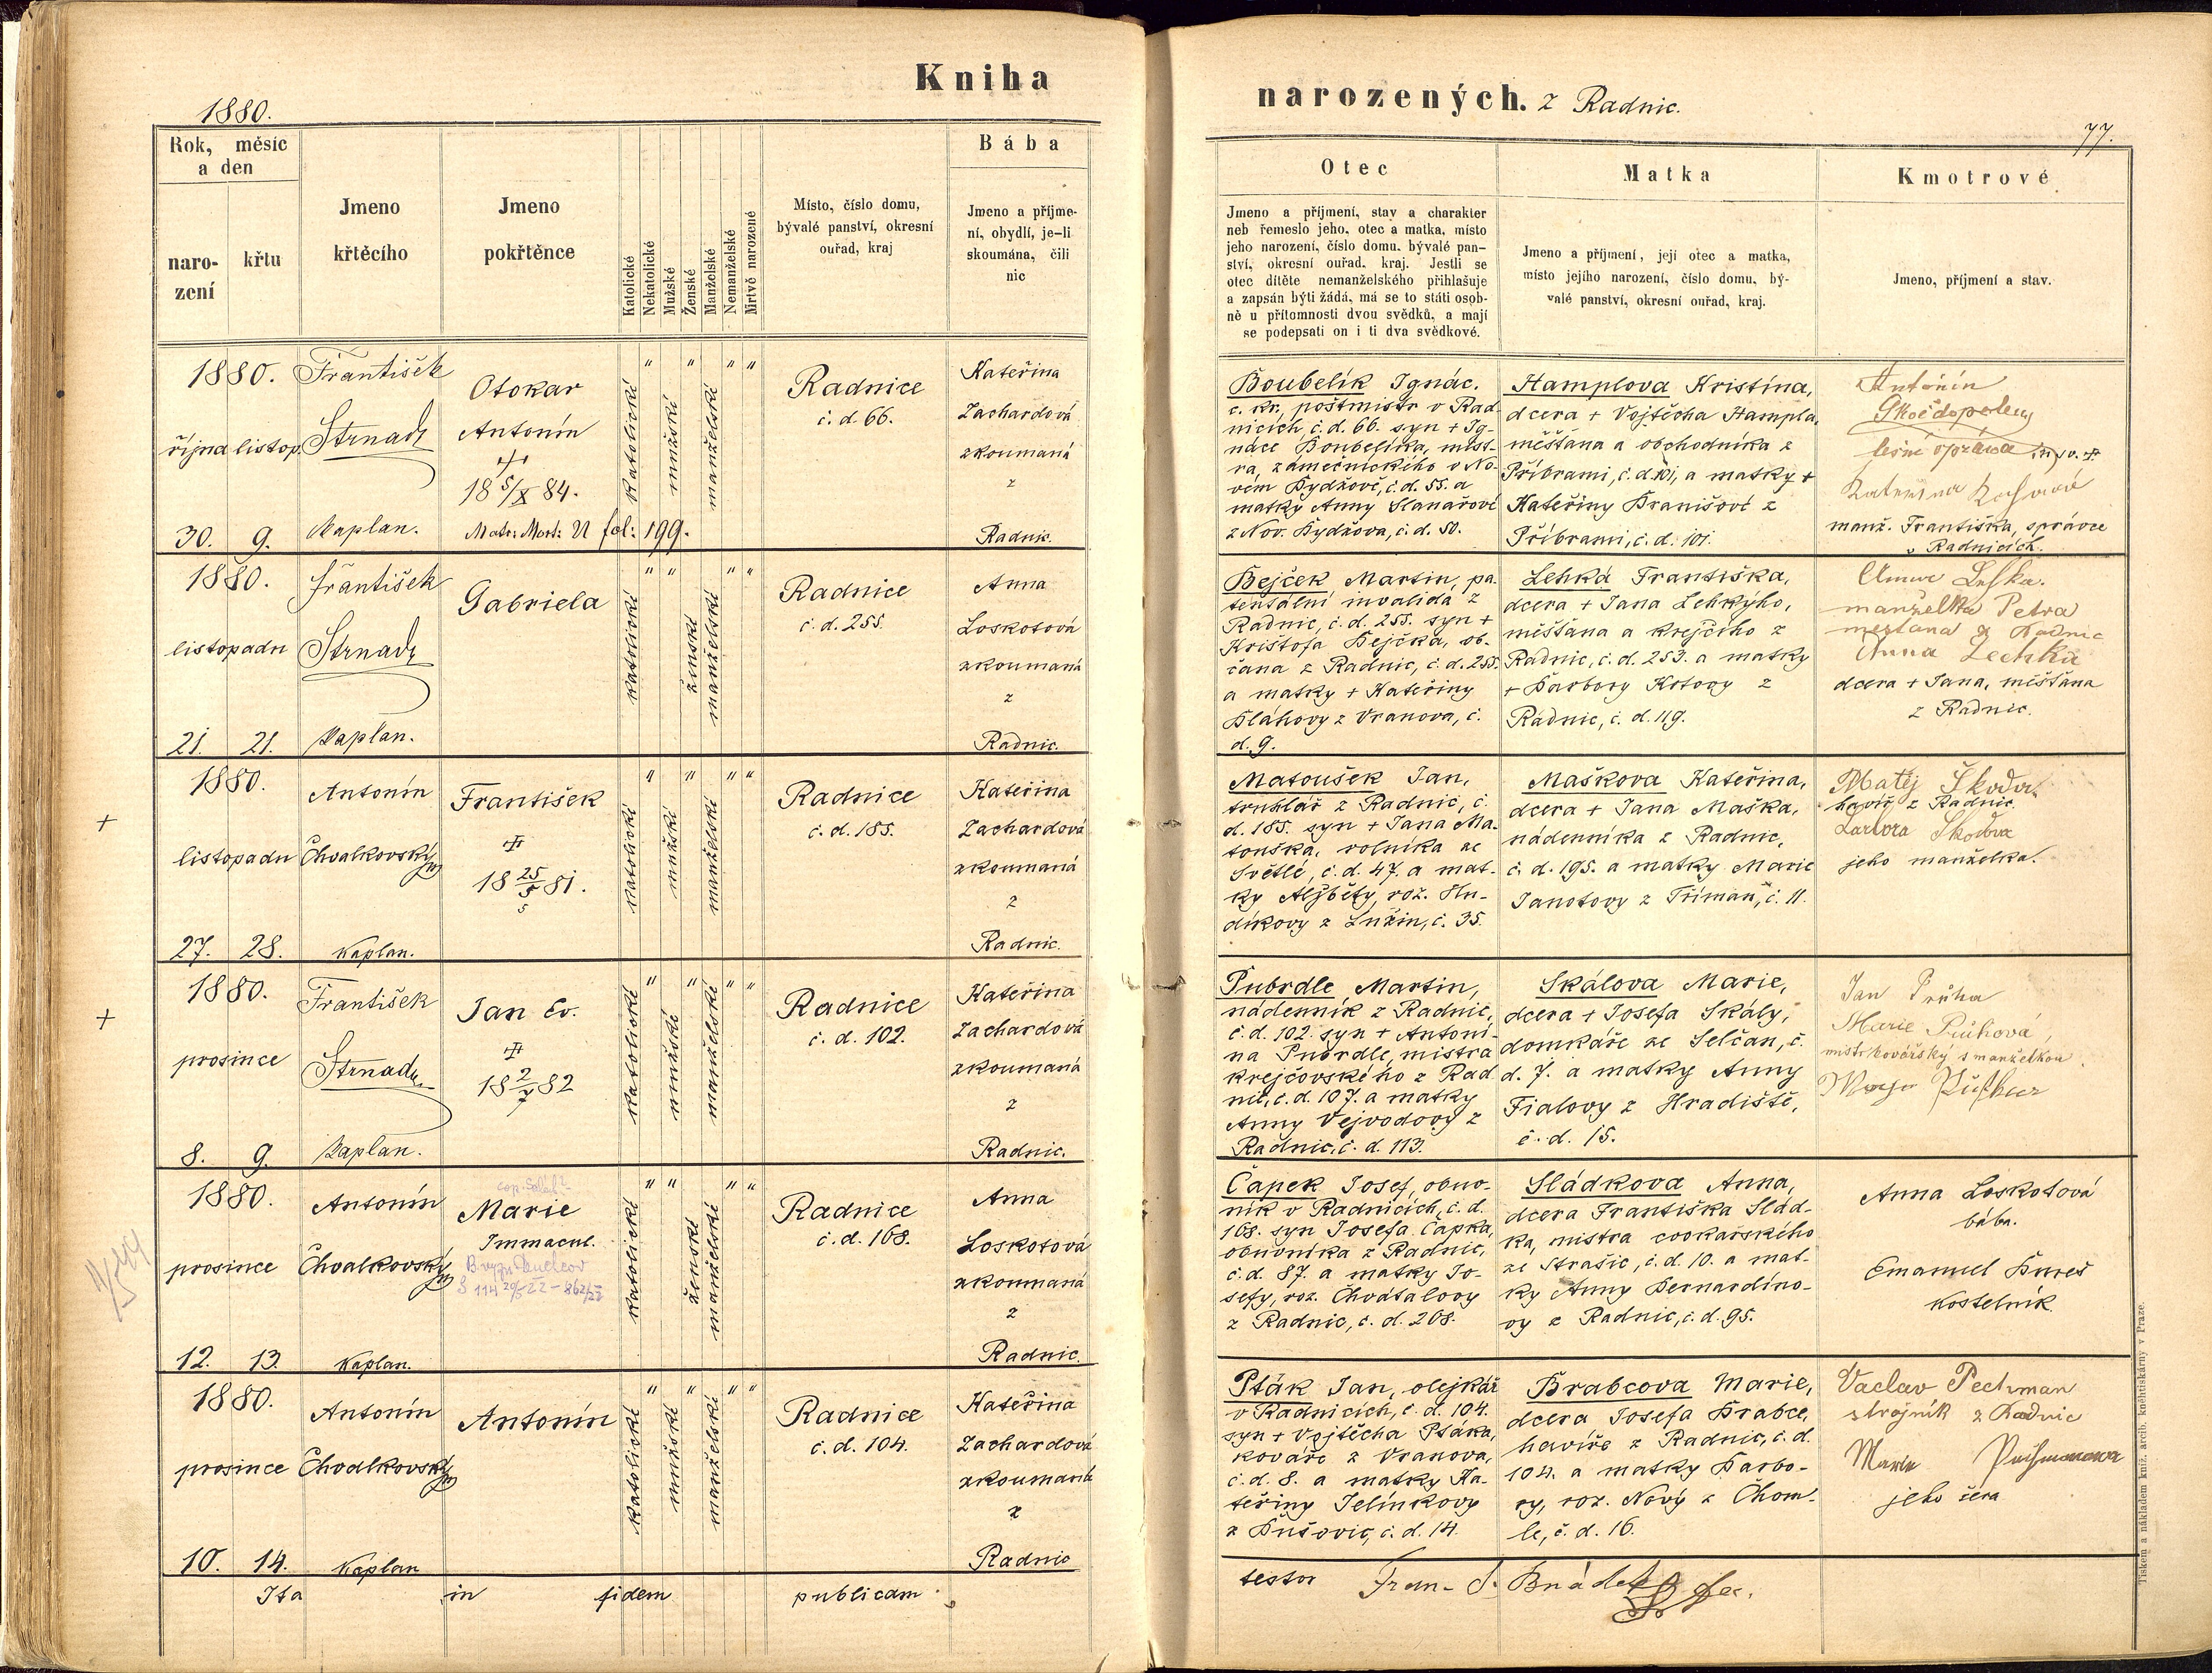 Kniha
1880.
Rok, měsíc
a den
naro-
zení
křtu
Jmeno
křtěcího
Jmeno
pokřtěnce
Katolické
Nekatolické
Mužské
Ženské
Manželské
Nemanželské
Mrtvě narozené
Místo, číslo domu,
bývalé panství, okresní
ouřad, kraj
Bába
Jmeno a příjme-
ní, obydlí, je-li
skoumána, čili
nic
1880.
října listop.
30. 9.
František
Strnad
Kaplan.
Otokar
Antonín
18 5/X 84.
Matr: Mort: VI fol: 199.
katolické
mužské
manželské
Radnice
č. d. 66.
Kateřina
Zachardová
zkoumaná
z
Radnic.
1880.
listopadu
21. 21.
František
Strnad
Kaplan.
Gabriela
katolické
ženské
manželské
Radnice
č. d. 255.
Anna
Loskotová
zkoumaná
z
Radnic.
+
1880.
listopadu
27. 28.
Antonín
Chvalkovský
Kaplan.
František
18 25/5 81.
5
katolické
mužské
manželské
Radnice
č. d. 185.
Kateřina
Zachardová
zkoumaná
z
Radnic.
+
1880.
prosince
8. 9.
František
Strnad
Kaplan.
Jan Ev.
18 2/7 82
katolické
mužské
manželské
Radnice
č. d. 102.
Kateřina
Zachardová
zkoumaná
z
Radnic.
1880.
prosince
12. 13.
Antonín
Chvalkovský
Kaplan.
Marie
Immacul.
katolické
ženské
manželské
Radnice
č. d. 168.
Anna
Loskotová
zkoumaná
z
Radnic.
1880.
prosince
10. 14.
Antonín
Chvalkovský
Kaplan
Antonín
katolické
mužské
manželské
Radnice
č. d. 104.
Kateřina
Zachardová
zkoumaná
z
Radnic
Ita in fidem publicam
narozených. z Radnic.
77.
Otec
Jmeno a příjmení, stav a charakter
neb řemeslo jeho, otec a matka, místo
jeho narození, číslo domu, bývalé pan-
ství, okresní ouřad, kraj. Jestli se
otec dítěte nemanželského přihlašuje
a zapsán býti žádá, má se to státi osob-
ně u přítomnosti dvou svědků, a mají
se podepsati on i ti dva svědkové.
Matka
Jmeno a příjmení, její otec a matka,
místo jejího narození, číslo domu, bý-
valé panství, okresní ouřad, kraj.
Kmotrové
Jmeno, příjmení a stav.
Boubelík Ignác.
c. kr. poštmistr v Rad-
nicích, č. d. 66. syn + Ig-
náce Boubelíka, mist-
ra, zámečnického v No-
vém Bydžově, č. d. 55. a
matky Anny Slanařové
z Nov. Bydžova, č. d. 50.
Hamplova Kristína,
dcera + Vojtěcha Hampla,
měšťana a obchodníka z
Příbrami, č. d. 101, a matky +
Kateřiny Branišové z
Příbrami, č. d. 101.
Antonín
manž. Františka, správce
v Radnicích.
Bejček Martin, pa-
tentální invalida z
Radnic, č. d. 255. syn +
Krištofa Bejčka, ob-
čana z Radnic, č. d. 255.
a matky + Kateřiny
Bláhovy z Vranova, č.
d. 9.
Lehká Františka,
dcera + Jana Lehkýho,
měšťana a krejčího z
Radnic, č. d. 253. a matky
+ Barbory Kotovy z
Radnic, č. d. 119.
manželka Petra
měštana z Radnic
Anna Lechka
dcera + Jana, měšťana
z Radnic.
Matoušek Jan,
truhlář z Radnic, č.
d. 185. syn + Jana Ma-
touška, rolníka ze
Světlé, č. d. 47. a mat-
ky Alžběty, rož. Hu-
díkovy z Lužin, č. 35.
Maškova Kateřina,
dcera + Jana Maška,
nádenníka z Radnic,
č. d. 195. a matky Marie
Janotovy z Tříman, č. 11.
Matěj Škoda
havíř z Radnic.
Barbora Škodova
jeho manželka.
Pubrdle Martin,
nádenník z Radnic,
č. d. 102. syn + Antoni-
na Pubrdle, mistra
krejčovského z Rad
nic, č. d. 107. a matky
Anny Vejvodovy z
Radnic, č. d. 113.
Skálova Marie,
dcera + Josefa Skály,
domkáře ze Selčan, č.
d. 7. a matky Anny
Fialovy z Hradiště,
č. d. 15.
Jan Průha
Marie Průhová,
mistr kovářský s manželkou
Čapek Josef, obuv-
ník v Radnicích, č. d.
168. syn Josefa Čapka,
obuvníka z Radnic,
č. d. 87. a matky Jo-
sefy, roz. Chvátalovy
z Radnic, č. d. 208.
Sládkova Anna,
dcera Františka Slád-
ka, mistra cvokařského
ze Strašic, č. d. 10. a mat-
ky Anny Bernardino-
vy z Radnic, č. d. 95.
Anna Loskotová
bába.
Emanuel Bureš
kostelník.
Pták Jan, olejkář
v Radnicích, č. d. 104.
syn + Vojtěcha Ptáka,
kováře z Vranova,
č. d. 8. a matky Ka-
teřiny Jelínkovy
z Bušovic, č. d. 14.
Brabcova Marie,
dcera Josefa Brabce,
havíře z Radnic, č. d.
104. a matky Barbo-
ry, roz. Nový z Chom-
le, č. d. 16.
Vaclav Pechman
strojník z Radnic
Marie
jeho
testor
Tiskem a nákladem kníž. arcib. knihtiskárny v Praze.